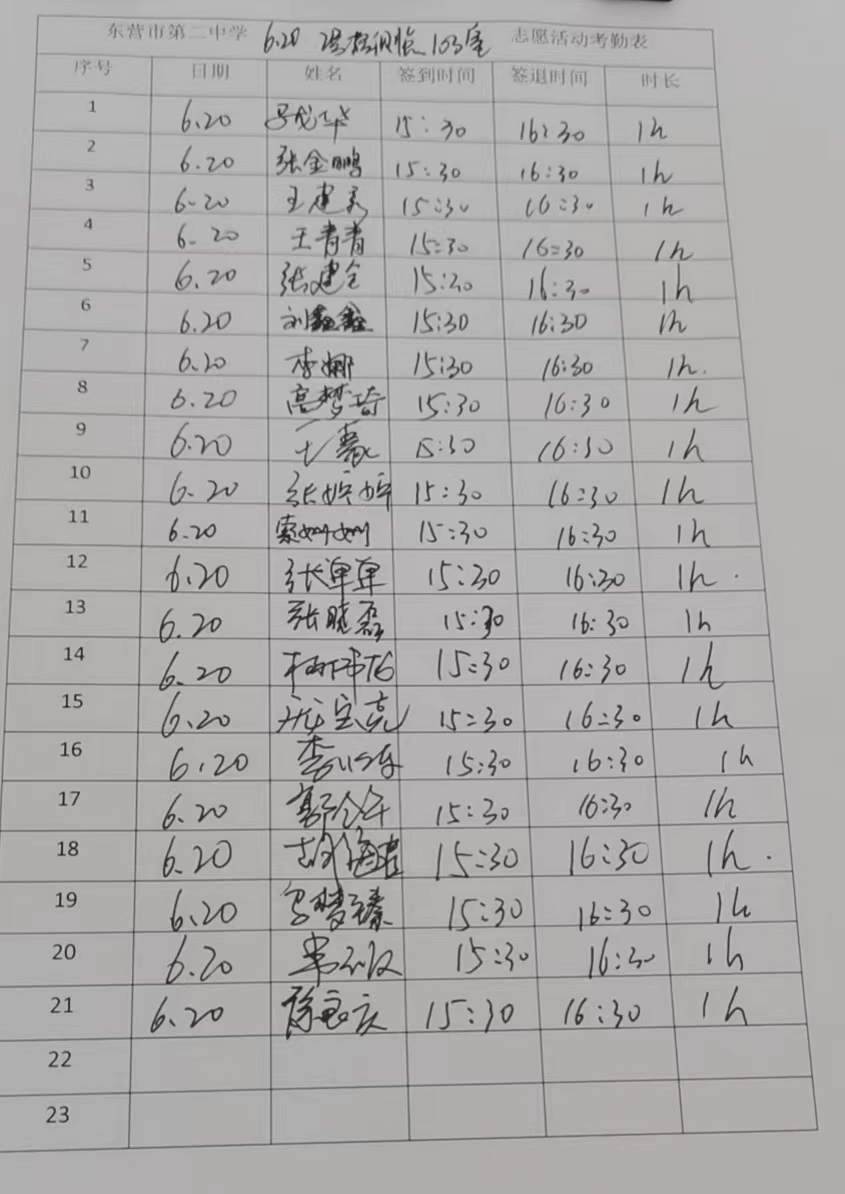 东营市第二中学 6.20 103室 志愿活动考勤表
序号 日期 姓名 签到时间 签退时间 时长
1 6.20 马龙华 15:30 16:30 1h
2 6.20 张金鹏 15:30 16:30 1h
3 6.20 王建秀 15:30 16:30 1h
4 6.20 王青青 15:30 16:30 1h
5 6.20 张建全 15:30 16:30 1h
6 6.20 刘鑫鑫 15:30 16:30 1h
7 6.20 李娜 15:30 16:30 1h.
8 6.20 高梦琦 15:30 16:30 1h
9 6.20 15:30 16:30 1h
10 6.20 张婷婷 15:30 16:30 1h
11 6.20 索姗姗 15:30 16:30 1h
12 6.20 张单单 15:30 16:30 1h.
13 6.20 张晓磊 15:30 16:30 1h
14 6.20 15:30 16:30 1h
15 6.20 宝亮 15:30 16:30 1h
16 6.20 15:30 16:30 1h
17 6.20 15:30 16:30 1h
18 6.20 15:30 16:30 1h.
19 6.20 马梦臻 15:30 16:30 1h
20 6.20 15:30 16:30 1h
21 6.20 15:30 16:30 1h
22
23